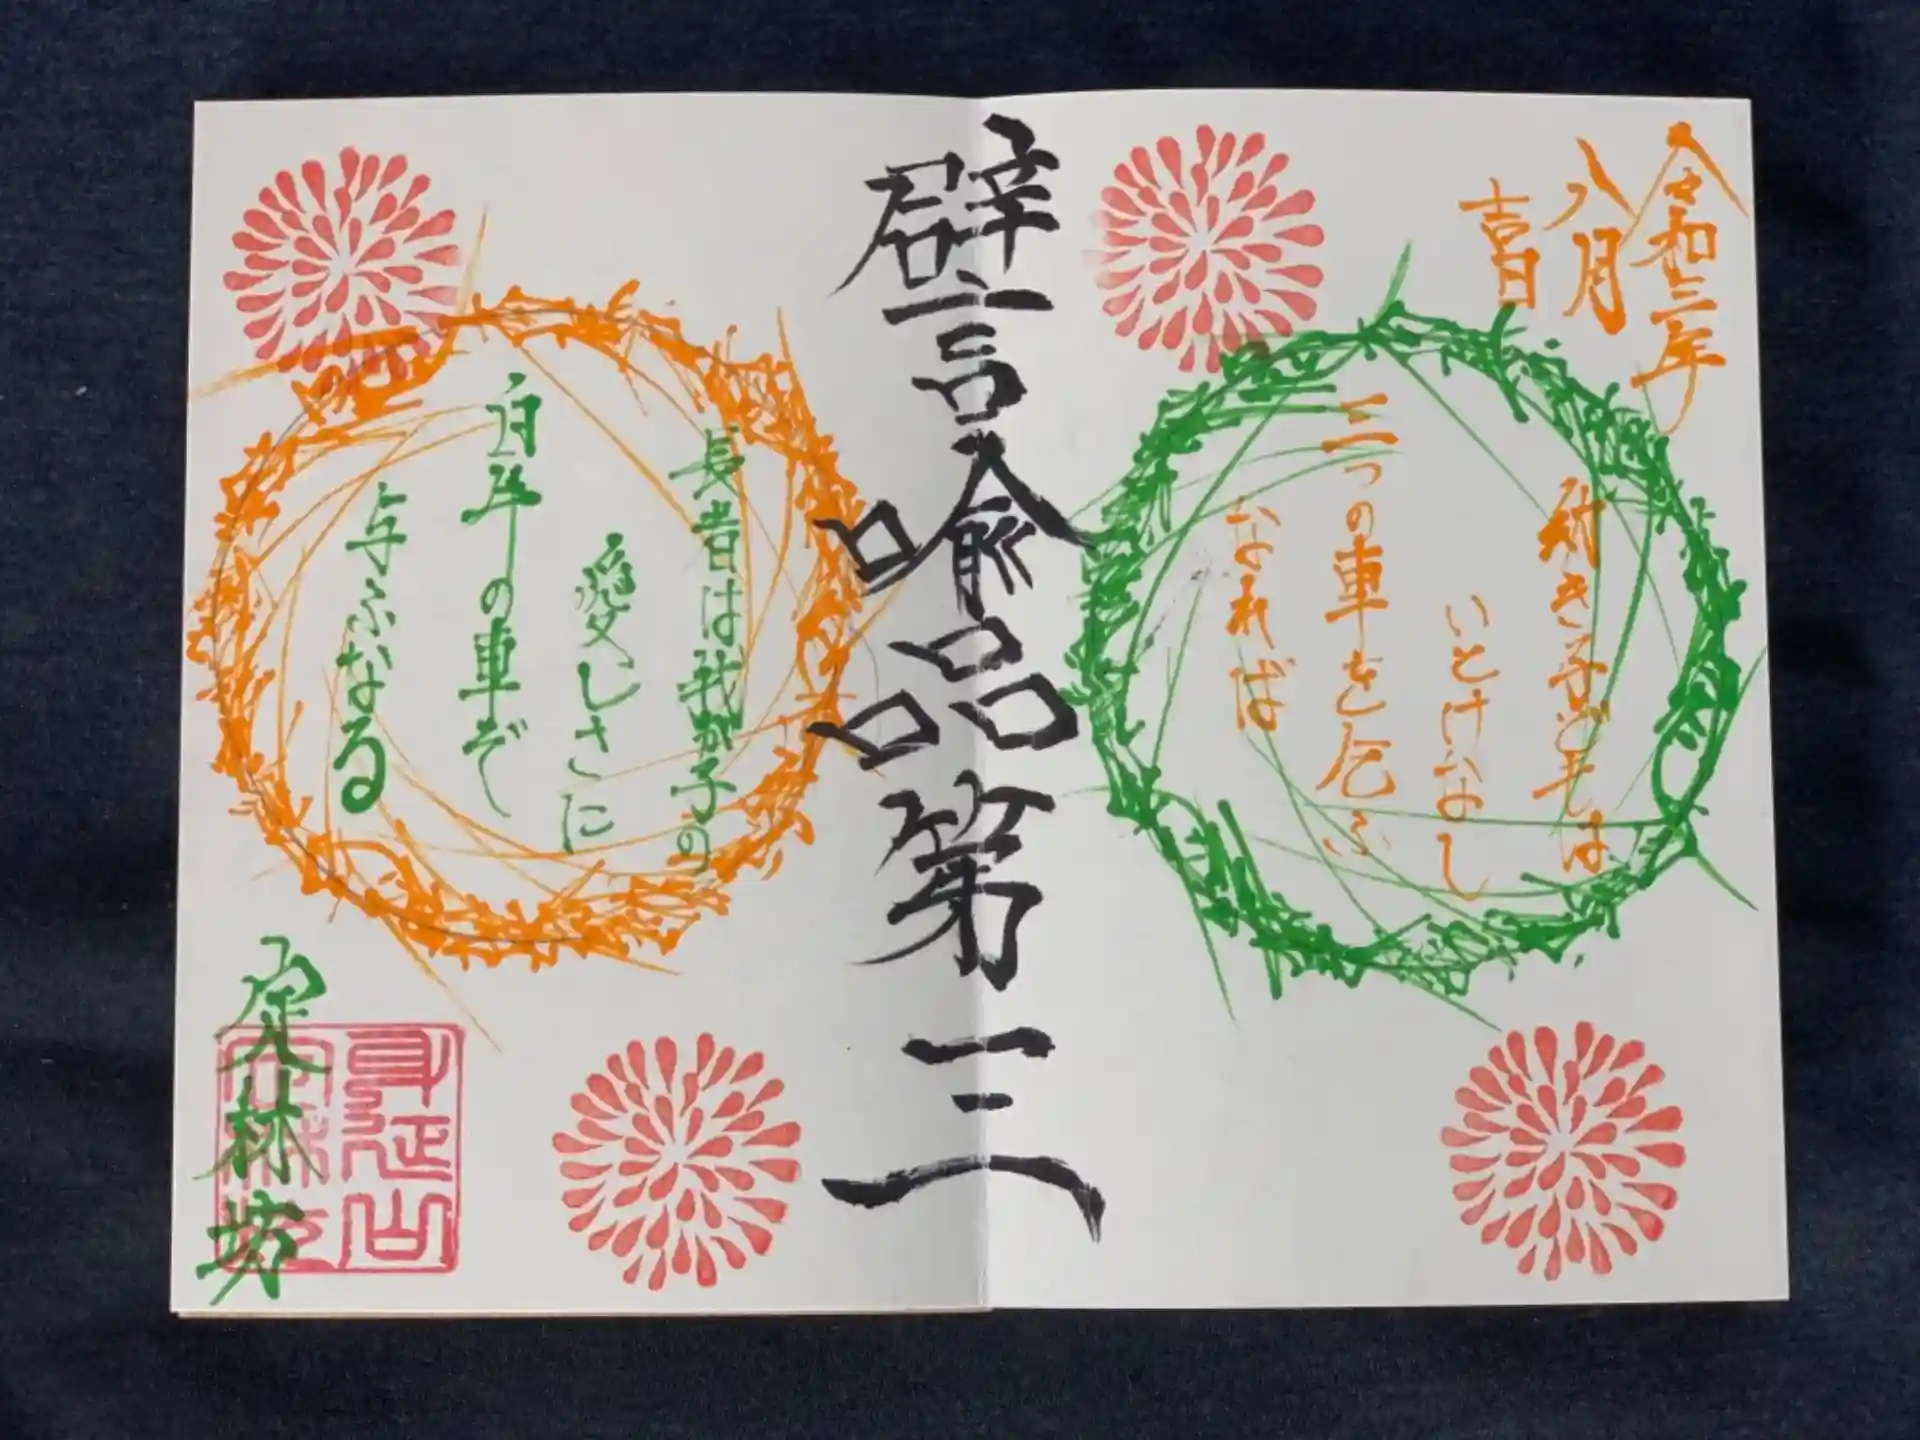 令和三年
八月
吉日
稚き子どもは
いとけなし
三つの車を乞ふ
なれば
譬喩品第三
長者は我が子の
愛しさに
白牛の車ぞ
与ふなる
定林坊
身延山
定林坊